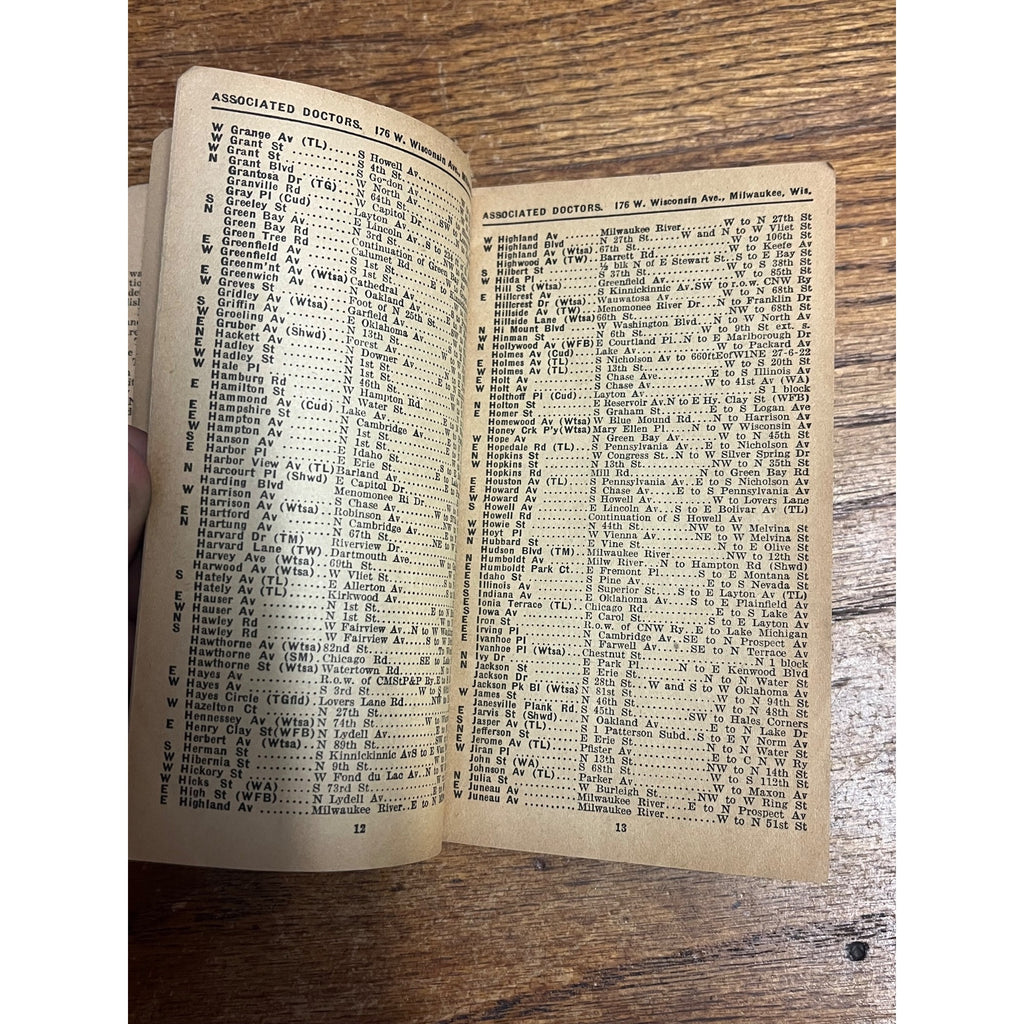 ASSOCIATED DOCTORS. 176 W. Wisconsin Ave.,
W Grange Av (TL).....S Howell Av
W Grant St ..........S 4th St
N Grant St ..........S Gordon Av
Grant Blvd ..........W North Av
Grantosa Dr (TG).....N 64th St
Granville Rd ........W Capitol Dr
Gray Pl (Cud) .......Layton Av
S Greeley St ........E Lincoln Av..S to 234
N Green Bay Av.......N 3rd St
Green Bay Rd ........Continuation of Green
Green Tree Rd .......Calumet Rd
E Greenfield Av .....S 1st St
W Greenfield Av .....S 1st St
Greenm'nt Av (Wtsa) Cathedral Av
E Greenwich Av ......N Oakland Av
W Greves St .........Foot of N 25th St
Gridley Av (Wtsa)....Garfield Av
S Griffin Av ........E Oklahoma Av
W Groeling Av .......N 13th St
Gruber Av (Shwd).....Forest Av
N Hackett Av ........N Downer Av
E Hadley St .........N 1st St
W Hadley St .........N 1st St
W Hale Pl ...........N 46th St
Hamburg Rd ..........W Hampton Rd
E Hamilton St .......N Water St
Hammond Av (Cud).....Lake Av
E Hampshire St ......N Cambridge Av
E Hampton Av ........N 1st St
W Hampton Av ........N 1st St
S Hanson Av .........E Idaho St
E Harbor Pl .........E Erie St
Harbor View Av (TL) Barland Av
N Harcourt Pl (Shwd) E Capitol Dr
Harding Blvd ........Menomonee Ri Dr
W Harrison Av .......S Chase Av
Harrison Av (Wtsa)...Robinson Av
E Hartford Av .......N Cambridge Av
N Hartung Av ........N 67th St
Harvard Dr (TM) .....Riverview Dr
Harvard Lane (TW)....Dartmouth Ave
Harvey Ave (Wtsa)....69th St
Harwood Av (Wtsa)....W Vliet St
S Hately Av (TL).....E Allerton Av
Hately Av (TL).......Kirkwood Av
E Hauser Av .........N 1st St
W Hauser Av .........N 1st St
N Hawley Rd .........W Fairview Av..N to W
S Hawley Rd .........W Fairview Av..S to
Hawthorne Av (Wtsa) 82nd St
Hawthorne Av (SM)....Chicago Rd....SE to
Hawthorne St (Wtsa) Watertown Rd
E Hayes Av ..........R.o.w. of CMStP&P Ry.E to
W Hayes Av ..........S 3rd St....W to
Hayes Circle (TGfld) Lovers Lane Rd
W Hazelton Ct .......N 27th St
Hennessey Av (Wtsa) N 74th St
E Henry Clay St(WFB) N Lydell Av
Herbert Av (Wtsa)....N 89th St
S Herman St .........S Kinnickinnic AvS to E
W Hibernia St .......N 9th St
W Hickory St ........W Fond du Lac Av..N to
W Hicks St (WA)......S 73rd St
E High St (WFB)......N Lydell Av
E Highland Av .......Milwaukee River..E to N
12
ASSOCIATED DOCTORS. 176 W. Wisconsin Ave., Milwaukee, Wis.
W Highland Av .......Milwaukee River.......W to N 27th St
W Highland Blvd .....N 27th St......W and N to W Vliet St
Highland Av (Wtsa) 67th St..............W to 106th St
Highwood Av (TW)....Barrett Rd..........W to Keefe Av
S Hilbert St ........½ blk N of E Stewart St..S to E Bay St
W Hilda Pl ..........S 37th St...........W to S 38th St
Hill St (Wtsa) ......Greenfield Av.......W to 85th St
E Hillcrest Av ......S Kinnickinnic Av.SW to r.o.w. CNW Ry
Hillcrest Dr (Wtsa)..Wauwatosa Av........W to N 68th St
Hillside Av (TW).....Menomonee River Dr..N to Franklin Dr
Hillside Lane (Wtsa) 66th St.............W to N 68th St
N Hi Mount Blvd .....W Washington Blvd...N to W North Av
W Hinman St .........N 6th St........W to 9th St ext. s.
N Hollywood Av (WFB) E Courtland Pl..N to E Marlborough Dr
Holmes Av (Cud) .....Lake Av.............W to Packard Av
E Holmes Av (TL).....S Nicholson Av to 660ftEofW1NE 27-6-22
W Holmes Av (TL).....S 13th St...........W to S 20th St
E Holt Av ...........S Chase Ave.........E to S Illinois Av
W Holt Av ...........S Chase Av..........W to 41st Av (WA)
Holthoff Pl (Cud) ...Layton Av...........S 1 block
N Holton St .........E Reservoir Av.N to E Hy. Clay St (WFB)
E Homer St ..........S Graham St.........E to S Logan Ave
Homewood Av (Wtsa) W Blue Mound Rd....N to Harrison Av
Honey Crk P'y(Wtsa) Mary Ellen Pl.....N to W Wisconsin Av
W Hope Av ...........N Green Bay Av......W to N 45th St
E Hopedale Rd (TL)...S Pennsylvania Av...E to Nicholson Av
W Hopkins St ........W Congress St..N to W Silver Spring Dr
W Hopkins St ........N 13th St...........NW to N 35th St
Hopkins Rd ..........Mill Rd.............N to Green Bay Rd
E Houston Av (TL)....S Pennsylvania Av...E to S Nicholson Av
E Howard Av .........S Chase Av....E to S Pennsylvania Av
W Howard Av .........S Howell Av.........W to Lovers Lane
S Howell Av .........E Lincoln Av...S to E Bolivar Av (TL)
Howell Rd ...........Continuation of S Howell Av
W Howie St ..........N 44th St...........NW to W Melvina St
W Hoyt Pl ...........W Vienna Av.........NE to W Melvina St
N Hubbard St ........E Vine St...........N to E Olive St
Hudson Blvd (TM) ....Milwaukee River.....NW to 12th St
N Humboldt Av .......Milw River....N to Hampton Rd (Shwd)
E Humboldt Park Ct...E Fremont Pl........S to E Montana St
E Idaho St ..........S Pine Av...........E to S Nevada St
S Illinois Av .......S Superior St...S to E Layton Av (TL)
S Indiana Av ........E Oklahoma Av...S to E Plainfield Av
Ionia Terrace (TL)...Chicago Rd..........E to S Lake Av
S Iowa Av ...........E Carol St..........S to E Layton Av
E Iron St ...........R.o.w. of CNW Ry....E to Lake Michigan
E Irving Pl .........N Cambridge Av...SE to N Prospect Av
E Ivanhoe Pl ........N Farwell Av....SE to N Terrace Av
Ivanhoe Pl (Wtsa)....Chestnut St.........N 1 block
N Ivy Dr ............E Park Pl....N to E Kenwood Blvd
N Jackson St ........E Erie St...........N to N Water St
Jackson Dr ..........S 28th St....W and S to W Oklahoma Av
Jackson Pk Bl (Wtsa) N 81st St...........W to N 94th St
W James St ..........S 45th St...........W to N 48th St
Janesville Plank Rd..SW to Hales Corners
E Jarvis St (Shwd)...N Oakland Av........E to N Lake Dr
S Jasper Av (TL).....S 1 Patterson Subd..S to E V Norm Av
N Jefferson St ......E Erie St...........N to N Water St
E Jerome Av (TL).....Pfister Av..........E to C N W Ry
W Jiran Pl ..........N 13th St...........NW to N 14th St
John St (WA).........S 68th St...........W to S 112th St
Johnson Av (TL)......Parker Av...........W to Maxon Av
N Julia St ..........W Burleigh St.......NW to W Ring St
E Juneau Av .........Milwaukee River.....E to N Prospect Av
W Juneau Av .........Milwaukee River.........W to N 51st St
13